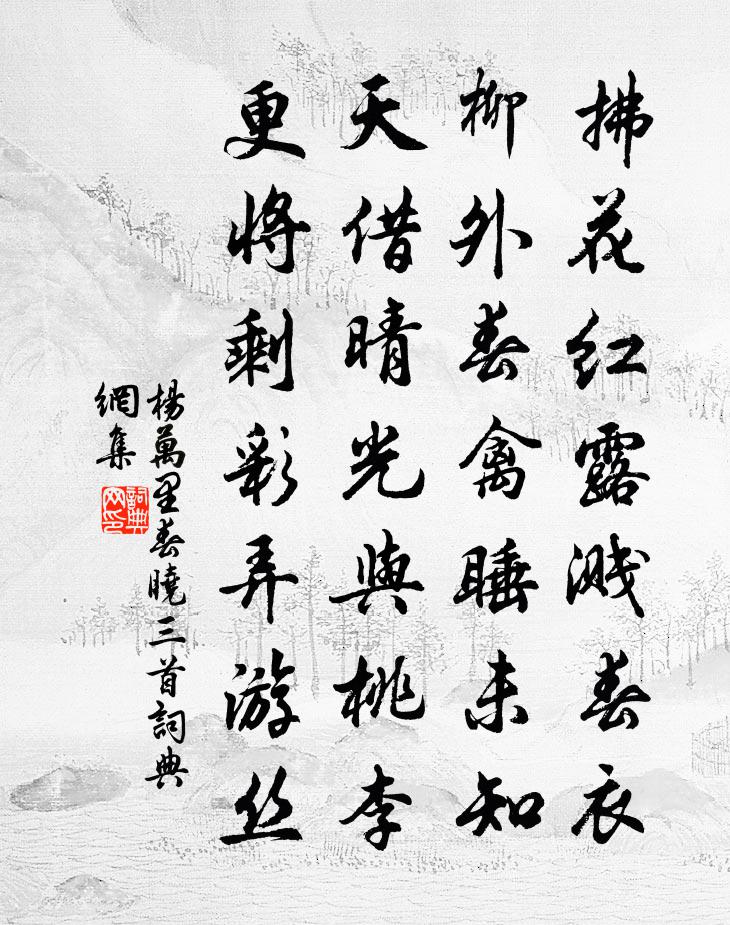 拂花红露溅春衣
柳外春禽睡未知
天借晴光與桃李
更将剩彩弄游丝
楊萬里春曉三首詞典
網集
詞典
网印